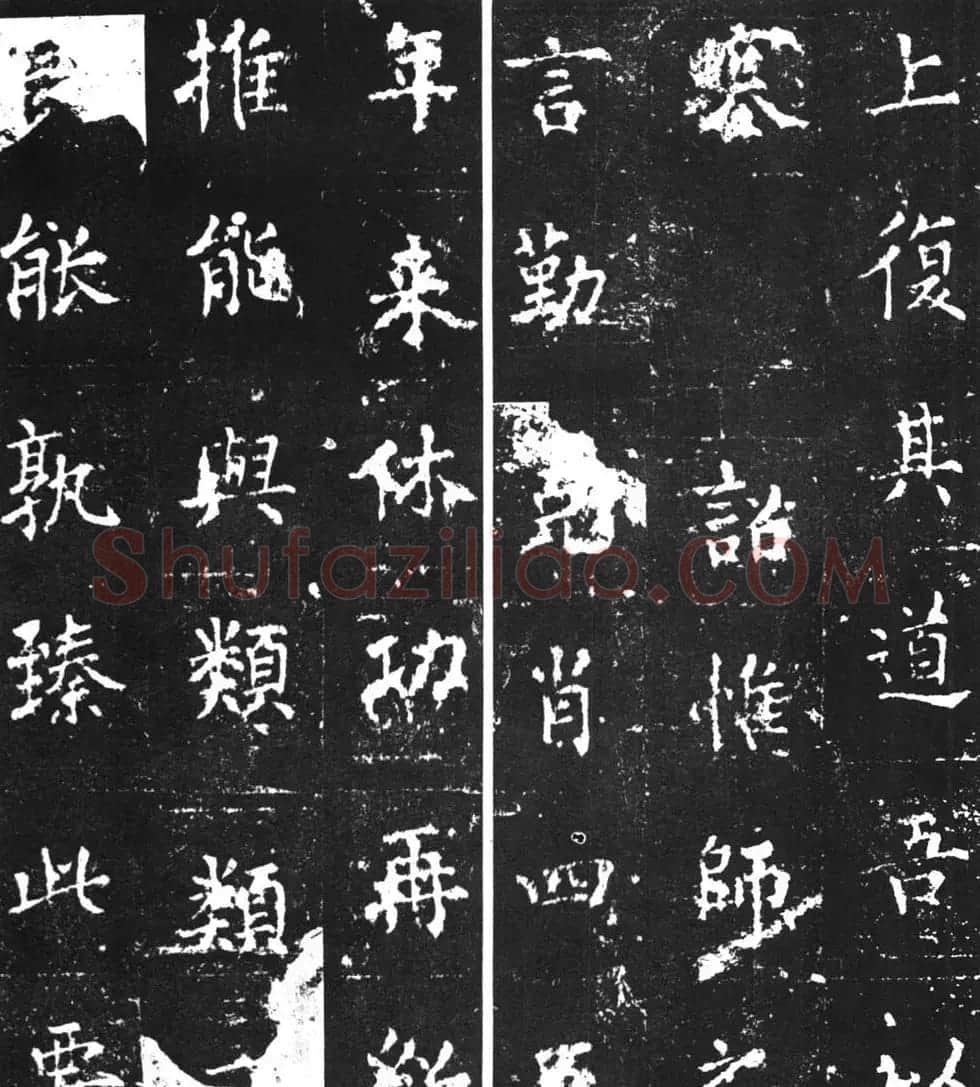 上復其道吾以
塞 詔惟師
言勤 肖四
年来休功再
推能與類類
良能孰臻此要
Shufaziliao.COM